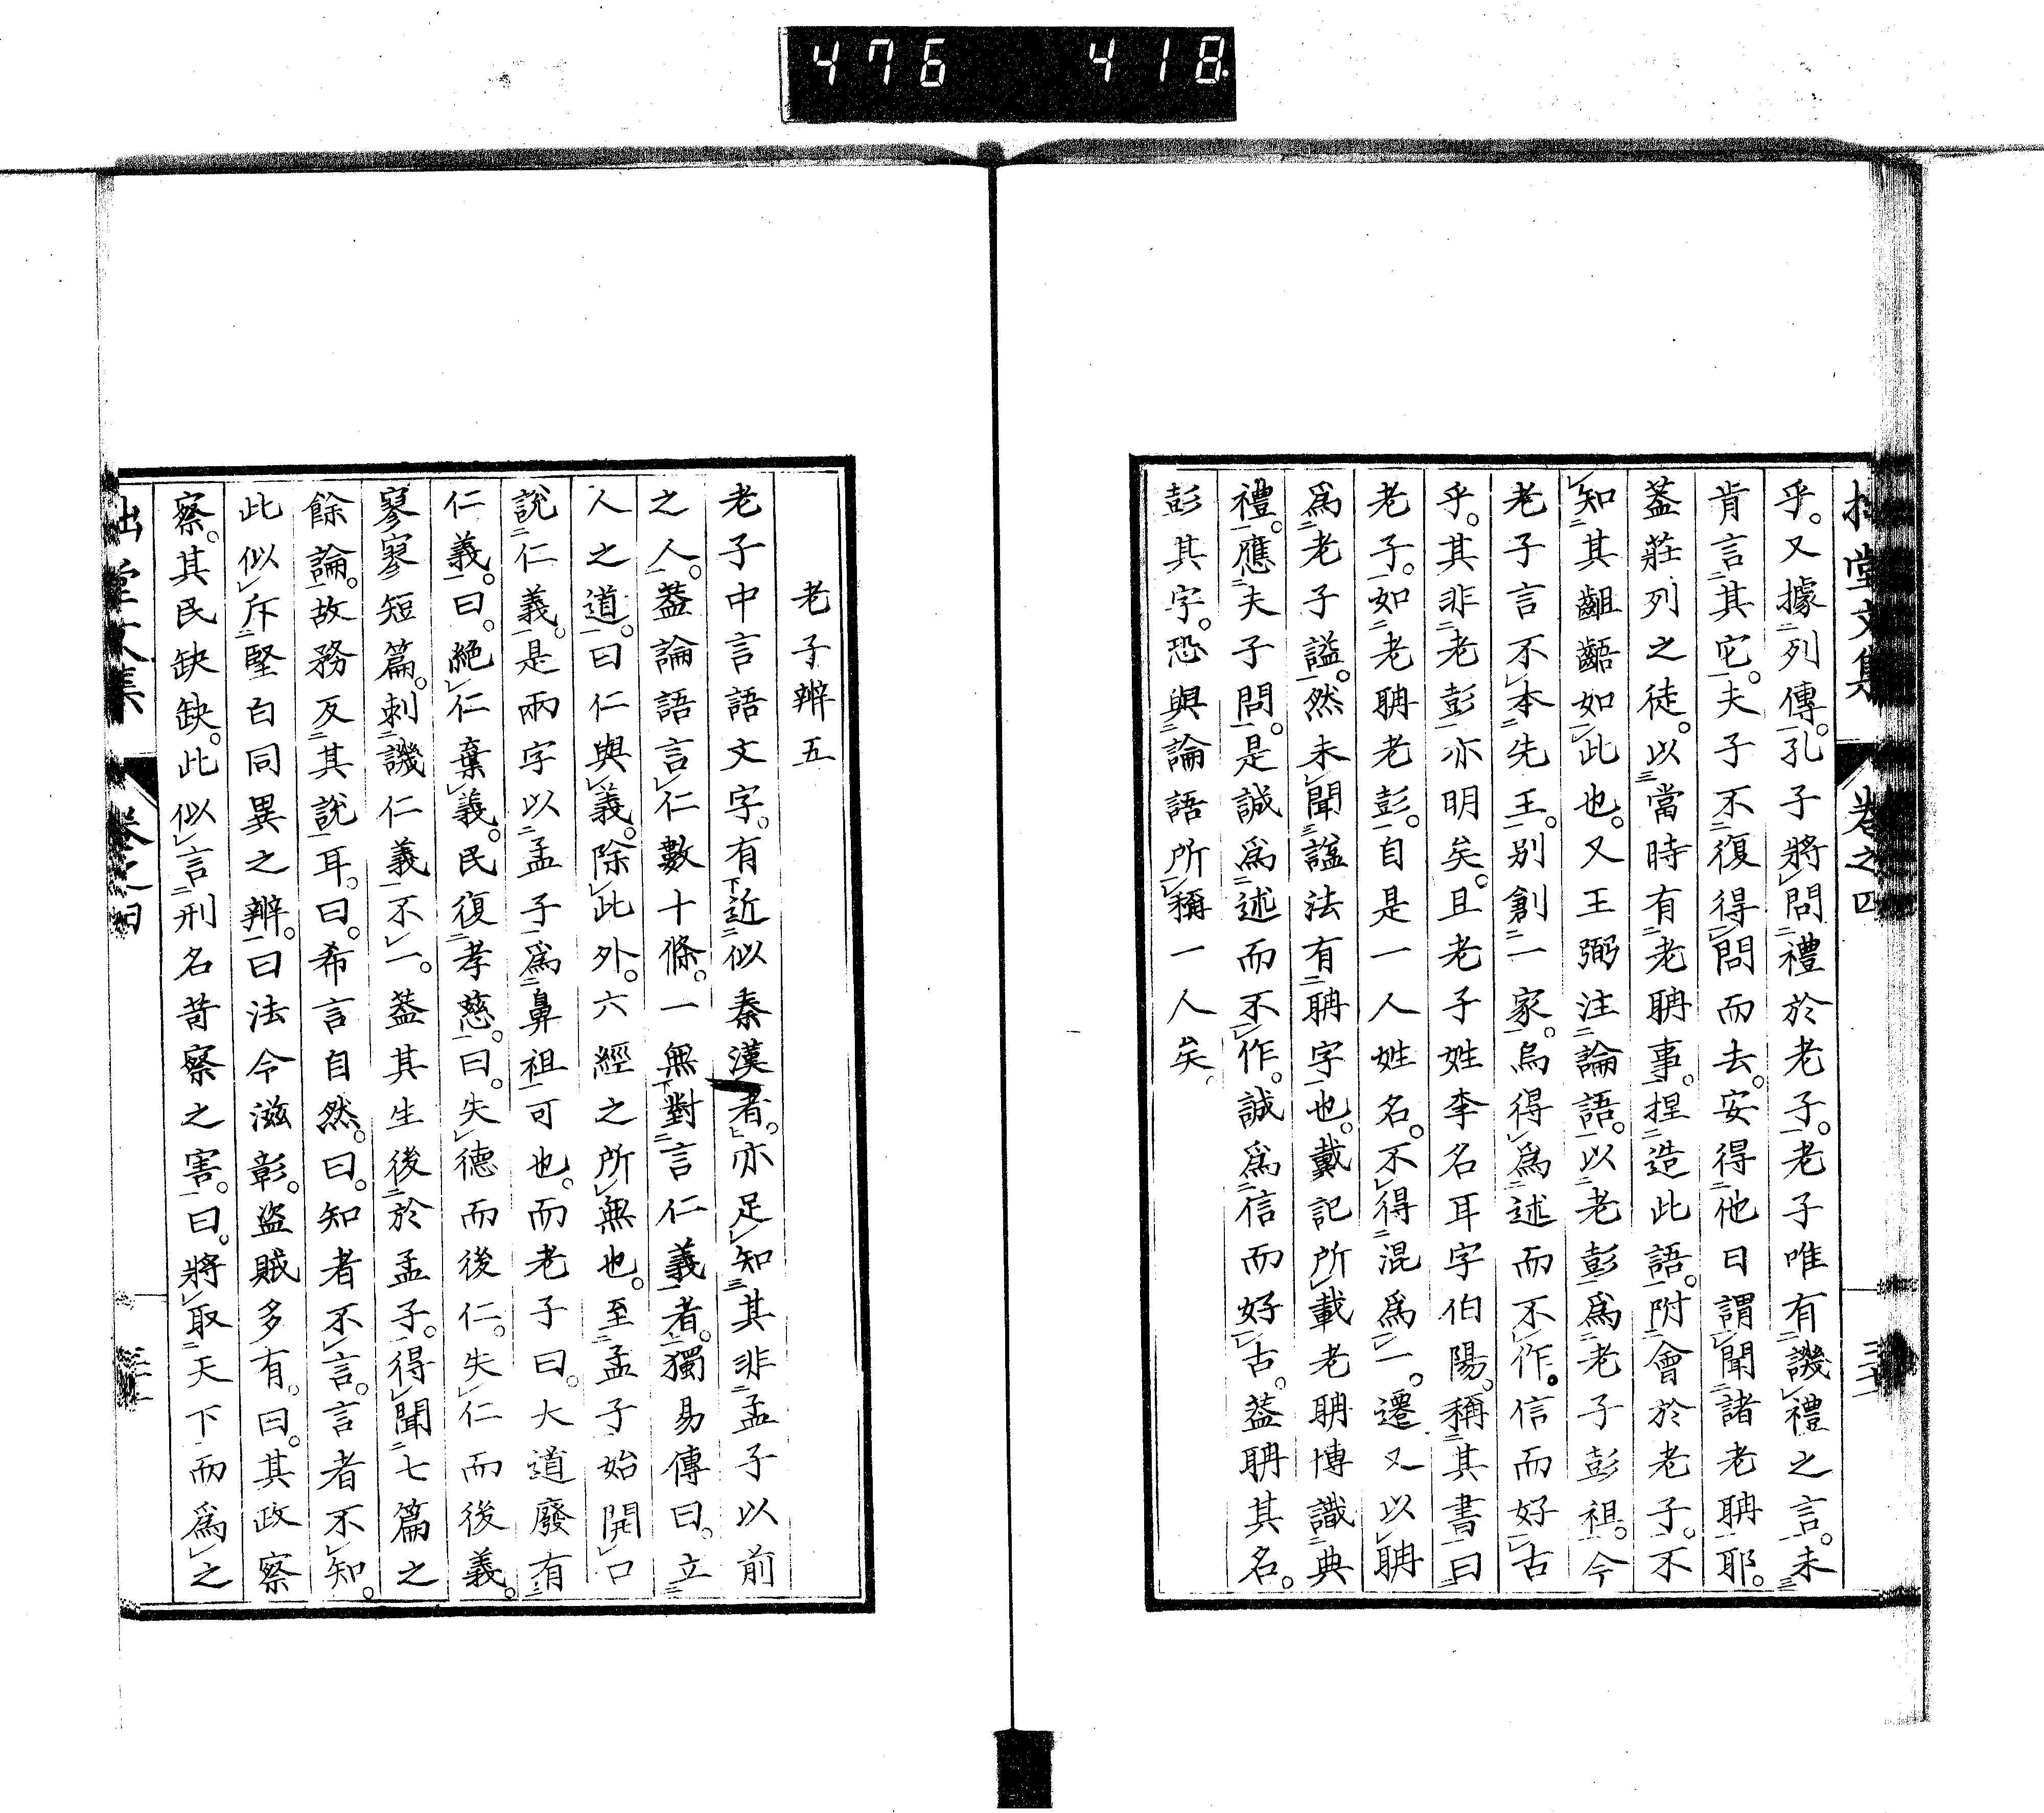 476 418
拙堂文集 卷之四
乎。又據列傳。孔子將問禮於老子。老子唯有譏禮之言。未
肯言其它。夫子不復得問而去。安得他日謂聞諸老聃耶。
葢莊列之徒。以當時有老聃事。揑造此語。附會於老子。不
知其齟齬如此也。又王弼注論語。以老彭爲老子彭祖。今
老子言不本先王。別創一家。烏得爲述而不作。信而好古
乎。其非老彭亦明矣。且老子姓李名耳字伯陽。稱其書曰
老子。如老聃老彭。自是一人姓名。不得混爲一。遷又以聃
爲老子謚。然未聞諡法有聃字也。戴記所載老聃博識典
禮。應夫子問。是誠爲述而不作。誠爲信而好古。葢聃其名。
彭其字。恐與論語所稱一人矣。
老子辨五
老子中言語文字。有近似秦漢者。亦足知其非孟子以前
之人。葢論語言仁數十條。一無對言仁義者。獨易傳曰。立
人之道。曰仁與義。除此外。六經之所無也。至孟子始開口
說仁義。是兩字以孟子爲鼻祖可也。而老子曰。大道廢有
仁義。曰。絕仁棄義。民復孝慈。曰。失德而後仁。失仁而後義。
寥寥短篇。刺譏仁義不一。葢其生後於孟子。得聞七篇之
餘論。故務反其說耳。曰。希言自然。曰。知者不言。言者不知。
此似斥堅白同異之辨。曰法令滋彰。盜賊多有。曰。其政察
察。其民缺缺。此似言刑名苛察之害。曰。將取天下而爲之
拙堂文集 卷之四